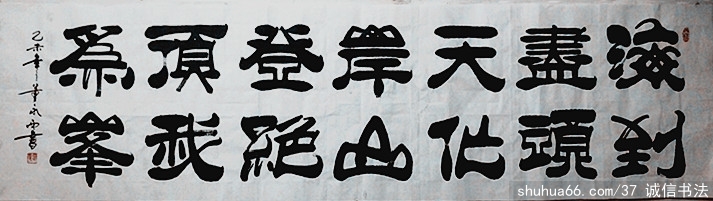 海到
盡頭
天作
岸山
登絕
頂我
爲峯
乙未年
shuhua66.com/37 诚信书法